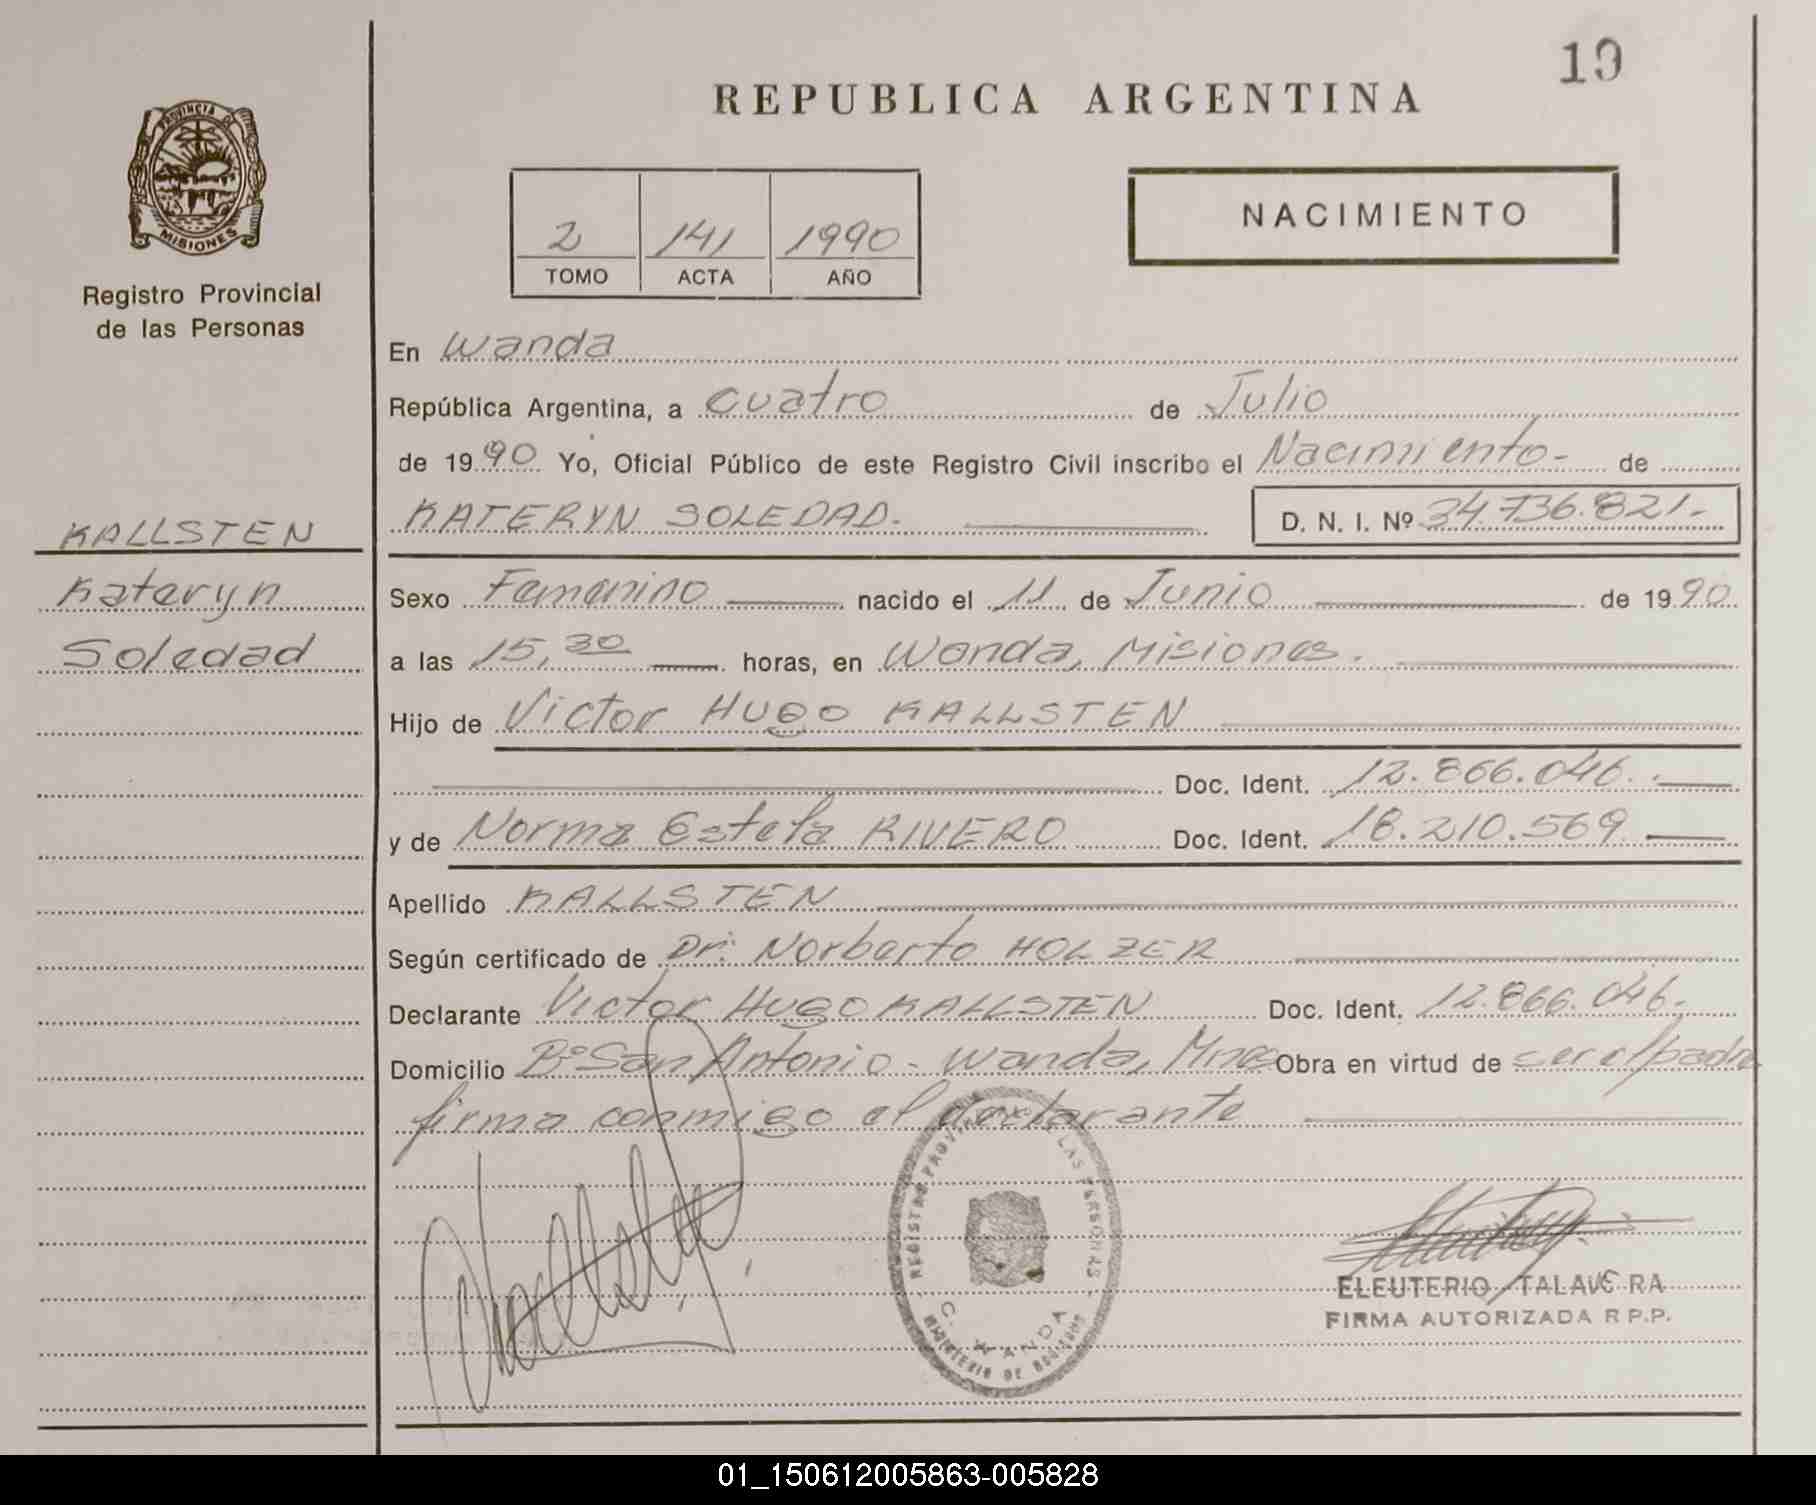 19
REPUBLICA ARGENTINA
PROVINCIA DE
MISIONES
Registro Provincial
de las Personas
NACIMIENTO
2 141 1990
TOMO ACTA AÑO
En Wanda
República Argentina, a cuatro de Julio
de 1990 Yo, Oficial Público de este Registro Civil inscribo el Nacimiento- de
KATERYN SOLEDAD. D. N. I. Nº 34.736.821.-
KALLSTEN
Kateryn
Soledad
Sexo Femenino nacido el 11 de Junio de 1990
a las 15,30 horas, en Wanda, Misiones.
Hijo de Victor Hugo KALLSTEN
Doc. Ident. 12.866.046.
y de Norma Estela RIVERO Doc. Ident. 18.210.569
Apellido KALLSTEN
Según certificado de Dr. Norberto HOLZER
Declarante Victor Hugo KALLSTEN Doc. Ident. 12.866.046.
Domicilio Bº San Antonio - Wanda, Mnes Obra en virtud de ser el padre
firma conmigo el declarante
REGISTRO PROVINCIAL DE LAS PERSONAS
C. WANDA
MINISTERIO DE GOBIERNO
ELEUTERIO TALAVERA
FIRMA AUTORIZADA R P.P.
01_150612005863-005828